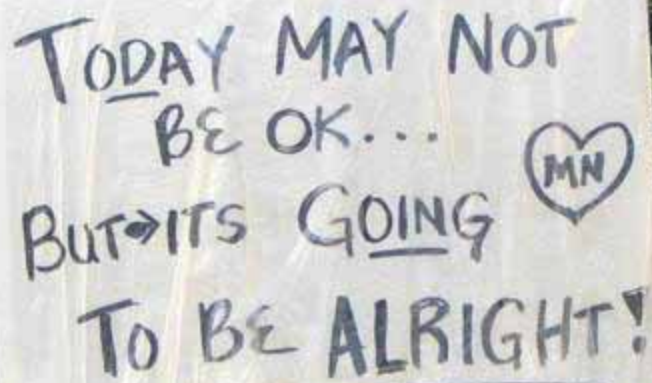 TODAY MAY NOT
BE OK...
MN
BUT→ITS GOING
TO BE ALRIGHT!